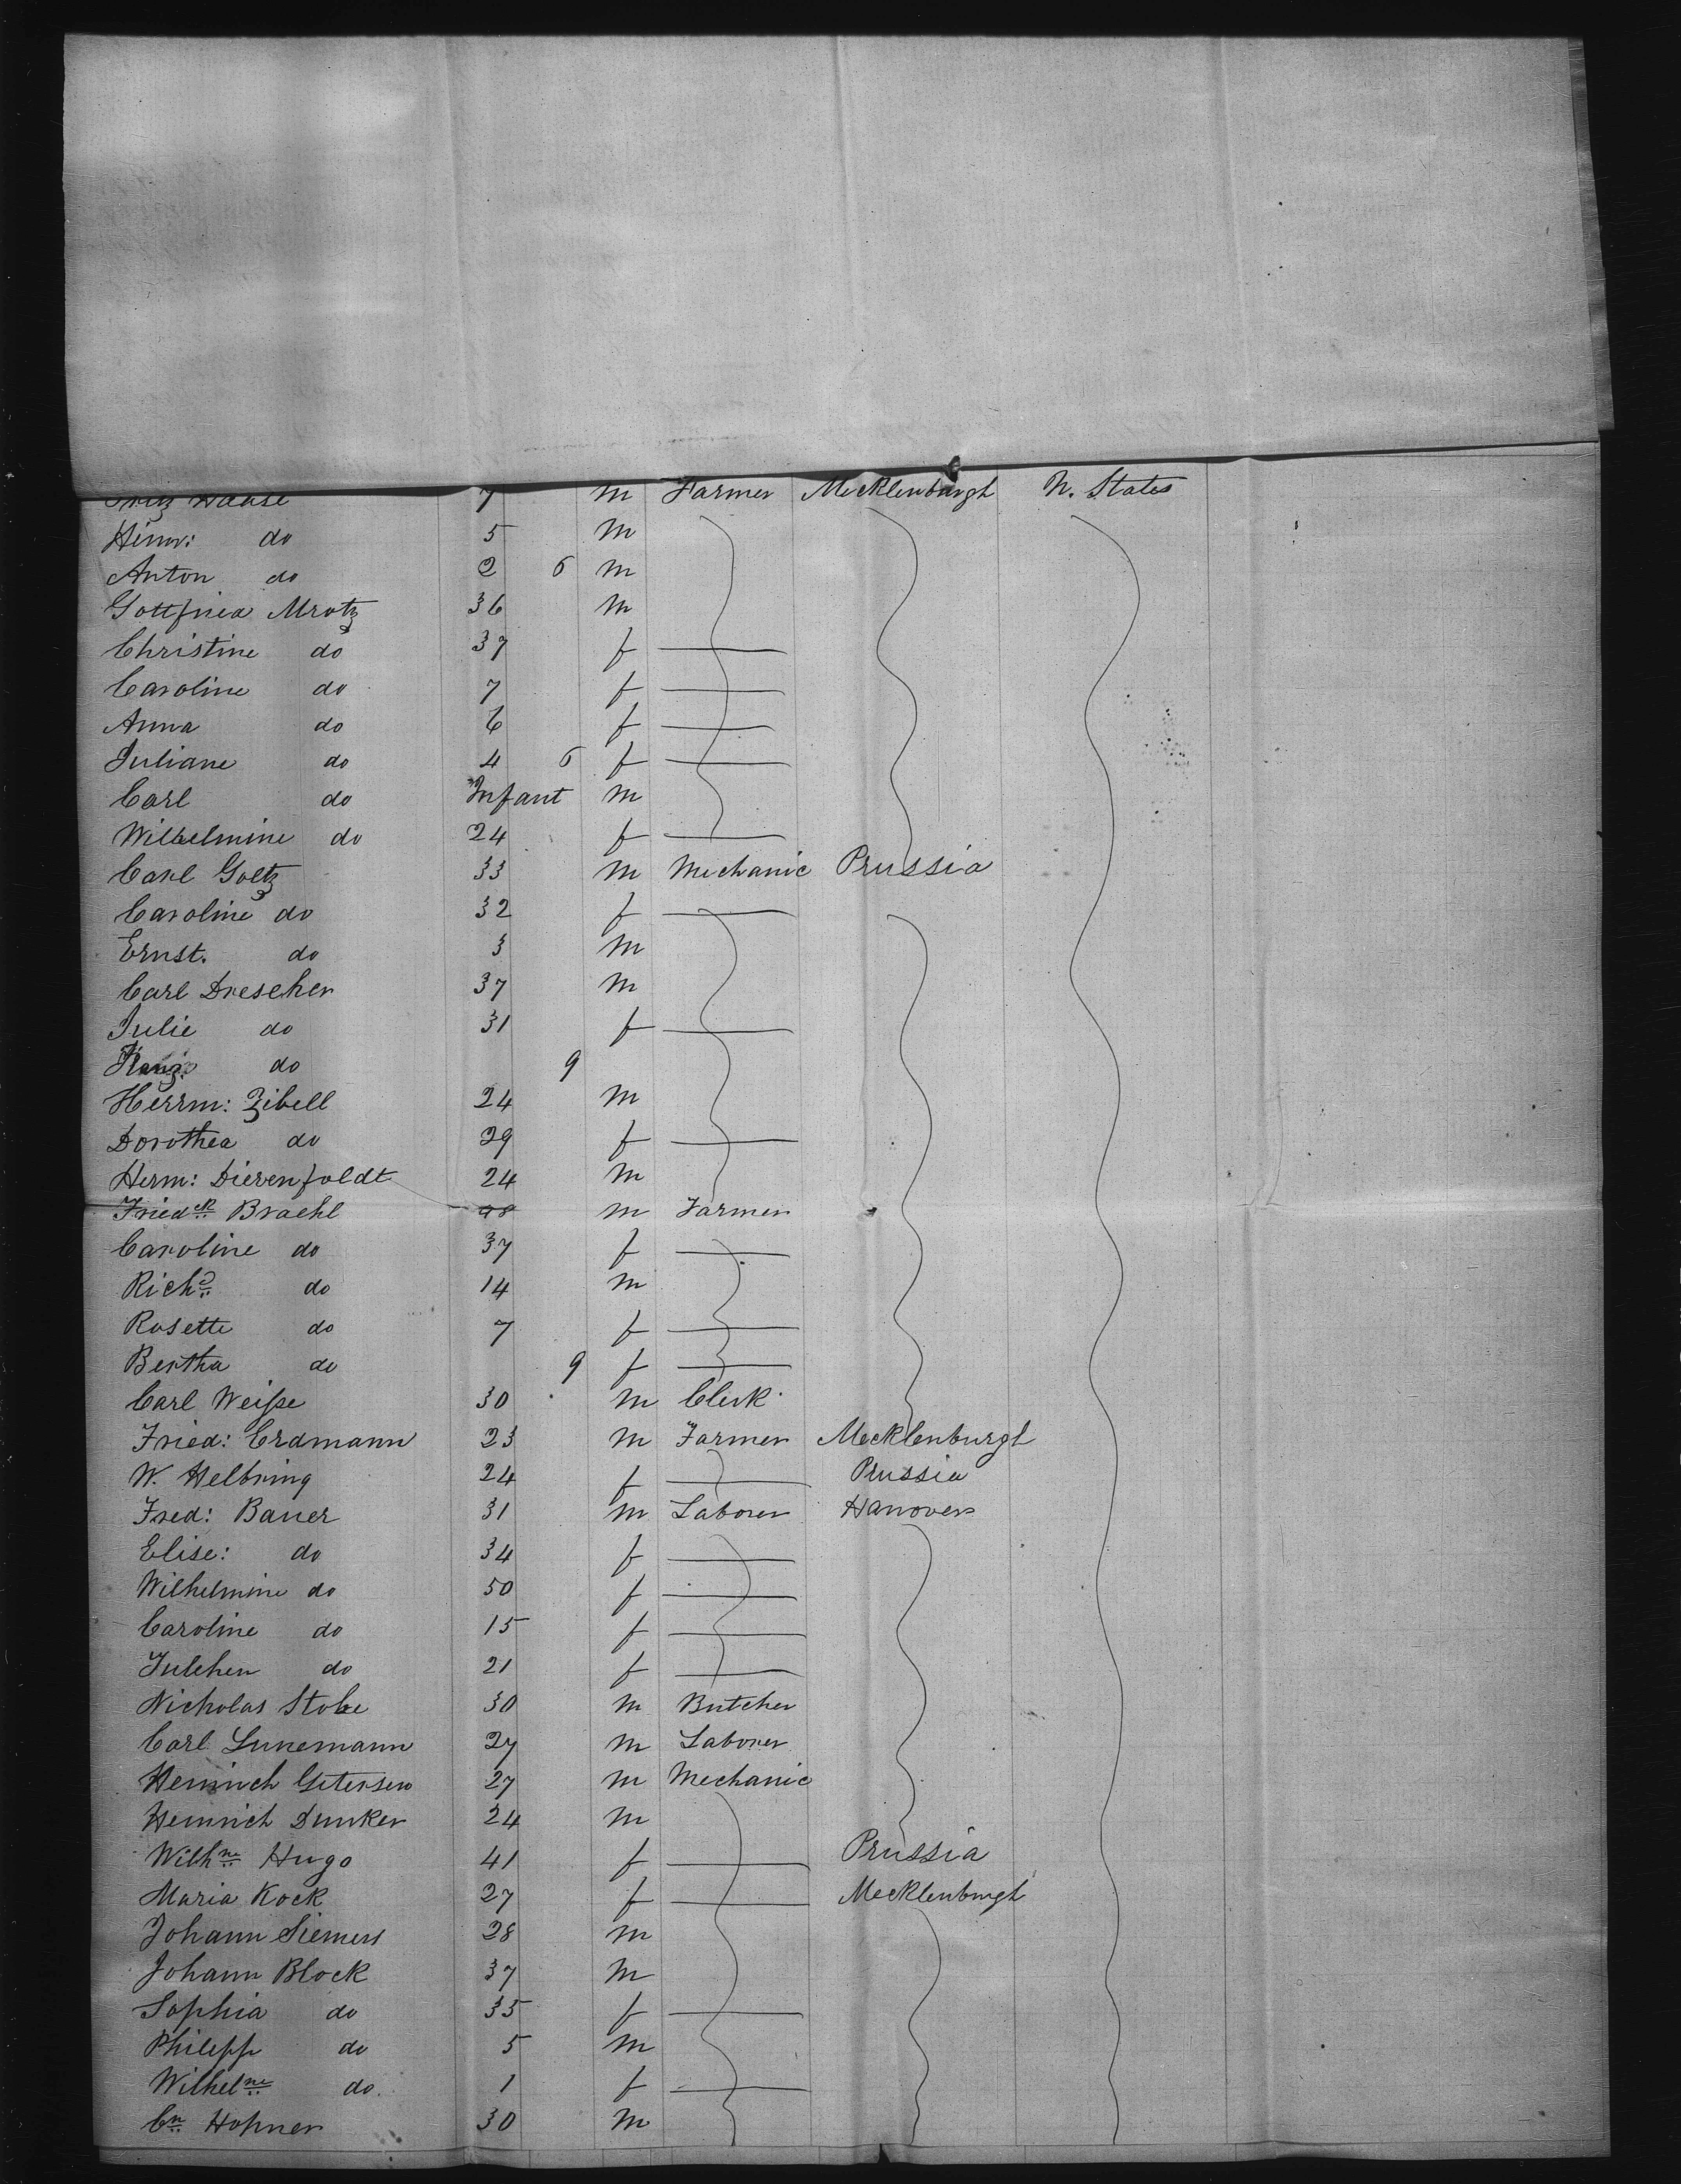 Fritz Haase 7 m Farmer Mecklenburgh N. States
Hinr: do 5 m
Anton do 2 6 m
Gottfried Mrotz 36 m
Christine do 37 f
Caroline do 7 f
Anna do 6 f
Juliane do 4 6 f
Carl do Infant m
Wilhelmine do 24 f
Carl Goltz 33 m Mechanic Prussia
Caroline do 32 f
Ernst. do 3 m
Carl Drescher 37 m
Julie do 31 f
do 9
Herrm: Zibell 24 m
Dorothea do 29 f
Herm: Dierenfoldt 24 m
Friedch Braehl 48 m Farmer
Caroline do 37 f
Richd do 14 m
Rosette do 7 f
Bertha do 9 f
Carl Weiße 30 m Clerk
Fried: Erdmann 23 m Farmer Mecklenburgh
W. Helbring 24 f Prussia
Fred: Bauer 31 m Laborer Hanover
Elise: do 34 f
Wilhelmine do 50 f
Caroline do 15 f
Julchen do 21 f
Nicholas Stobe 30 m Butcher
Carl Lunemann 27 m Laborer
Heinrich Getersen 27 m Mechanic
Heinrich Dunker 24 m
Wilhne Hugo 41 f Prussia
Maria Kock 27 f Mecklenburgh
Johann Siemers 28 m
Johann Block 37 m
Sophia do 35 f
Philipp do 5 m
Wilhelne do. 1 f
Cn Hopner 30 m